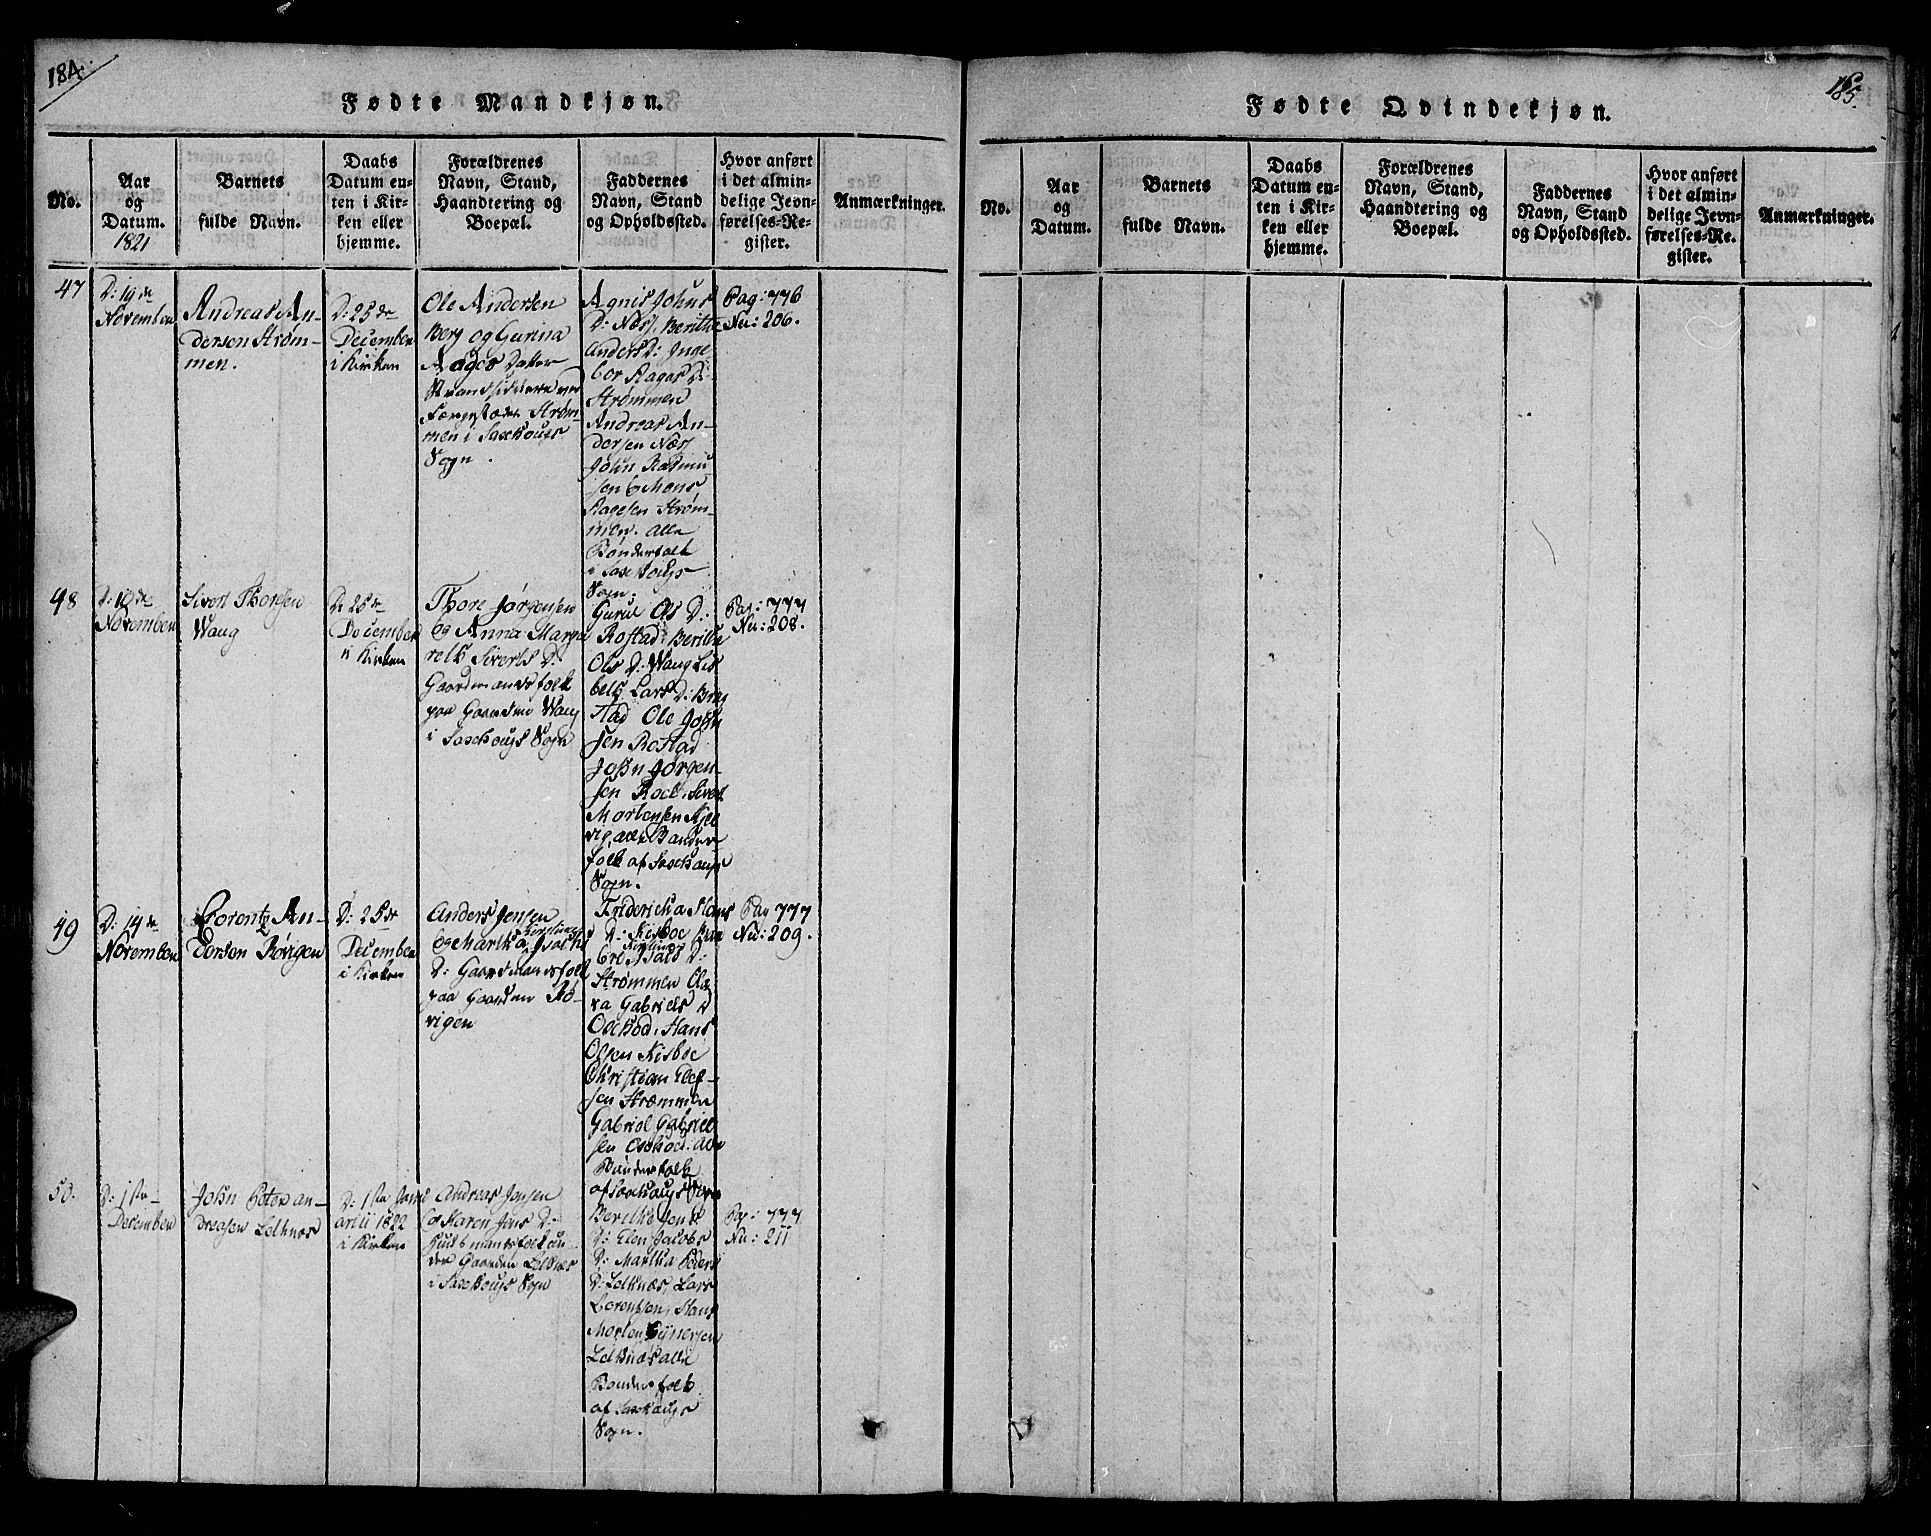 184.
Fødte Mandkjøn.
No.
Aar
og
Datum.
1821
Barnets
fulde Navn.
Daabs
Datum en-
ten i Kir-
ken eller
hjemme.
Forældrenes
Navn, Stand,
Haandtering og
Boepæl.
Faddernes
Navn, Stand
og Opholdssted.
Hvor anført
i det almin-
delige Jevn-
førelses-Re-
gister.
Anmærkninger.
47
D: 19de
November
Andreas An-
dersen Strøm-
men.
D: 25de
December
i Kirken
Ole Andersen
Berg og Gurina
Aages Datter
Strandsiddere ved
Færgestædet Strøm-
men i Saxhougs
Sogn.
Agnis Johns
D: Næss, Berithe
Anders D: Inge
bor Aages D:
Strømmen
Andreas An-
dersen Næss
John Rasmu-
sen & Mons
Aagesen Strøm-
men. alle
Bønderfolk
i Saxhougs
Sogn.
Pag: 776
Nu: 206.
48
D: 10de
November
Sivert Thoresen
Waug
D: 25de
December
i Kirken
Thore Jørgensen
og Anna Marga
reth Siverts D:
Gaardmandsfolk
paa Gaarden Waug
i Saxhougs Sogn
Guril Ols D:
Rostad: Berithe
Ols D: Waug Lis
beth Lars D: Breg
stad Ole John
sen Rostad
John Jørgen-
sen Roel. Sivert
Mortensen Kjel
vig, alle Bønder-
folk af Saxhougs
Sogn.
Pag: 777
Nu: 208.
49
D: 14de
November
Lorentz An-
dersen Røvigen
D: 25de
December
i Kirken
Anders Jensen
og Martha Kerstine Isachs
D: Gaardmandsfolk
paa Gaarden Rø-
vigen
Fridericha Hans
D: Kisboe
Strømmen Cla
ra Gabriels D
Oexhod. Hans
Olsen Kisboe
Christian Elef-
sen Strømmen
Gabriel Gabriel
sen Oxhod: alle
Bønderfolk
af Saxhougs Sogn
Pag 777
Nu: 209.
50.
D: 1ste
December
John Peter An
dreasen Leknæs
D: 1ste Janu
arii 1822
i Kirken
Andreas Jensen
og Karen Jens D:
Huusmandsfolk un-
der Gaarden Leknæs
i Saxhougs Sogn
Berithe Jens
D: Elen Jacobs
D: Martha Peders
D: Leknæs, Lars
Lorentsen, Hans
Morten Ejnersen
Leknæs alle
Bønderfolk
af Saxhougs
Sogn.
Pag: 777
Nu: 211
185.
Fødte Qvindekjøn.
No.
Aar
og
Datum.
Barnets
fulde Navn.
Daabs
Datum en-
ten i Kir-
ken eller
hjemme.
Forældrenes
Navn, Stand,
Haandtering og
Boepæl.
Faddernes
Navn, Stand
og Opholdssted.
Hvor anført
i det almin-
delige Jevn-
førelses-Re-
gister.
Anmærkninger.